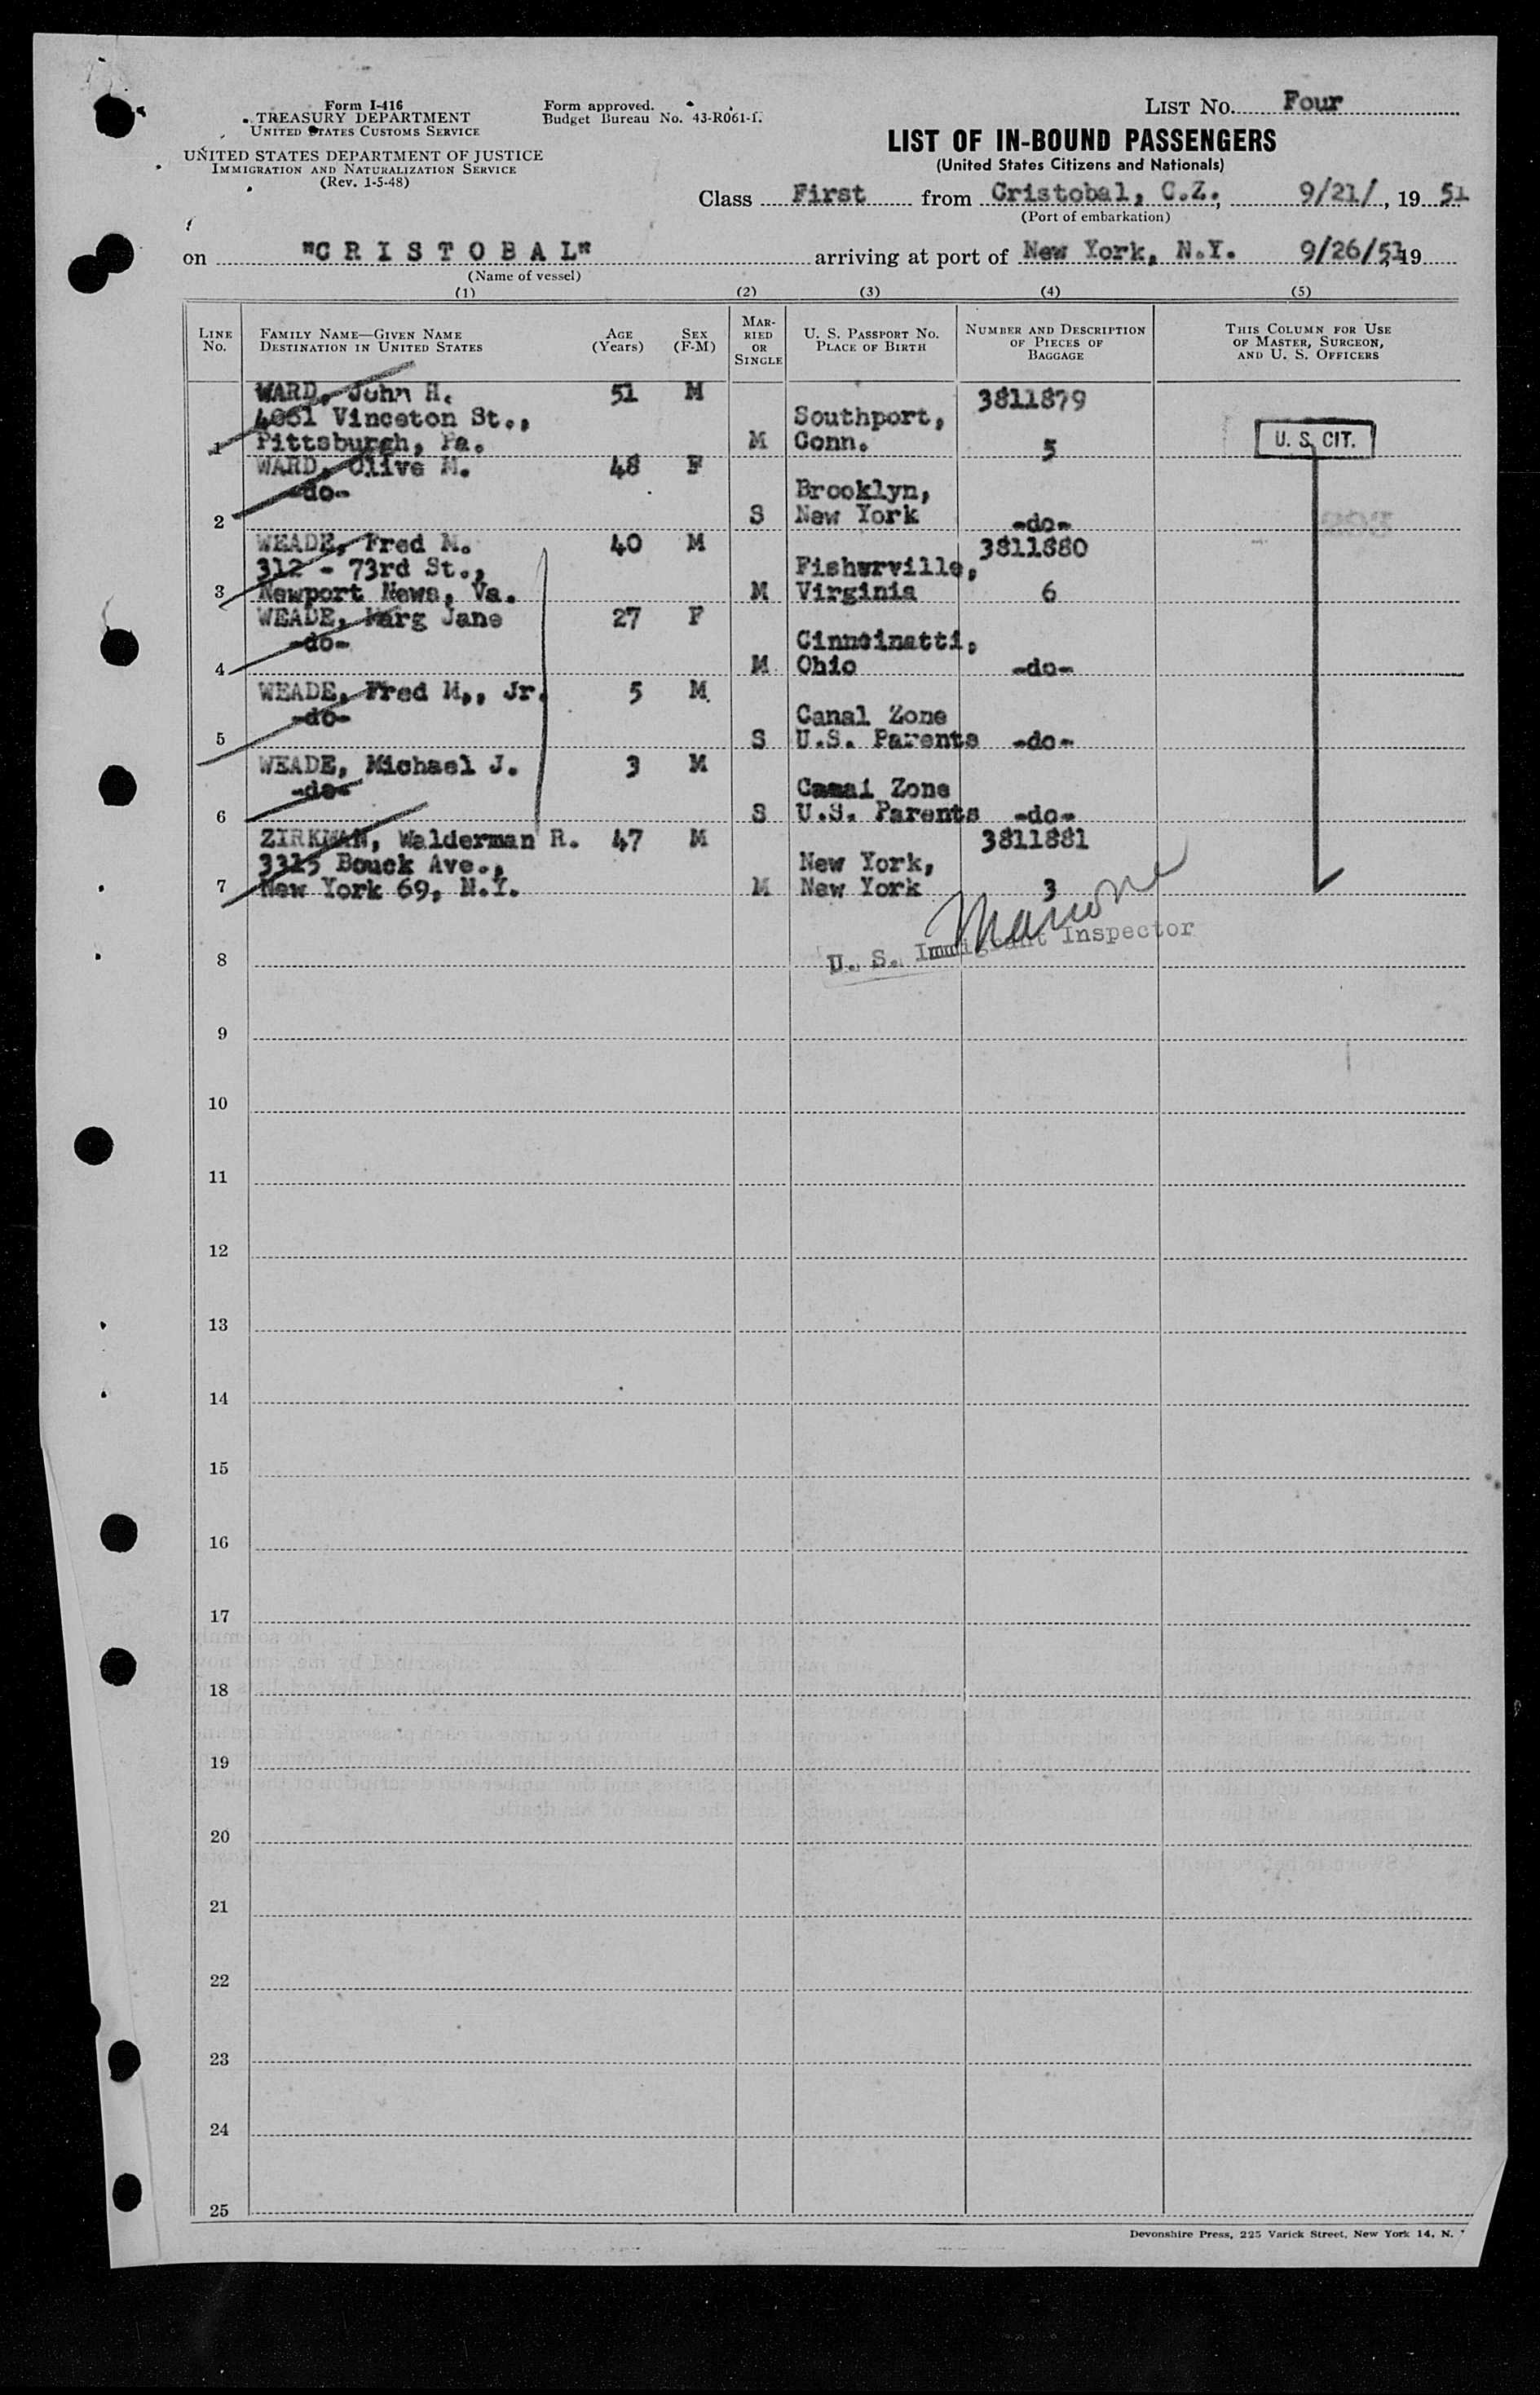 Form I-416
TREASURY DEPARTMENT
UNITED STATES CUSTOMS SERVICE
UNITED STATES DEPARTMENT OF JUSTICE
IMMIGRATION AND NATURALIZATION SERVICE
(Rev. 1-5-48)
Form approved.
Budget Bureau No. 43-R061-1.
LIST No. Four
LIST OF IN-BOUND PASSENGERS
(United States Citizens and Nationals)
Class First from Cristobal, C.Z., 9/21/, 19 51
(Port of embarkation)
on "C R I S T O B A L" arriving at port of New York, N.Y. 9/26/51 19
(Name of vessel)
(1) (2) (3) (4) (5)
LINE No.
FAMILY NAME—GIVEN NAME
DESTINATION IN UNITED STATES
AGE (Years)
SEX (F-M)
MARRIED OR SINGLE
U. S. PASSPORT NO.
PLACE OF BIRTH
NUMBER AND DESCRIPTION
OF PIECES OF
BAGGAGE
THIS COLUMN FOR USE
OF MASTER, SURGEON,
AND U. S. OFFICERS
WARD, John H. 51 M 3811879
4061 Vinceton St., Southport,
1 Pittsburgh, Pa. M Conn. 5 U. S. CIT.
WARD, Olive M. 48 F
-do- Brooklyn,
2 S New York -do-
WEADE, Fred M. 40 M 3811880
312 - 73rd St., Fisherville,
3 Newport News, Va. M Virginia 6
WEADE, Marg Jane 27 F
-do- Cinncinatti,
4 M Ohio -do-
WEADE, Fred M., Jr. 5 M
-do- Canal Zone
5 S U.S. Parents -do-
WEADE, Michael J. 3 M
-do- Canal Zone
6 S U.S. Parents -do-
ZIRKMAN, Walderman R. 47 M 3811881
3315 Bouck Ave., New York,
7 New York 69, N.Y. M New York 3
U. S. Immigrant Inspector
8
9
10
11
12
13
14
15
16
17
18
19
20
21
22
23
24
25
Devonshire Press, 225 Varick Street, New York 14, N.